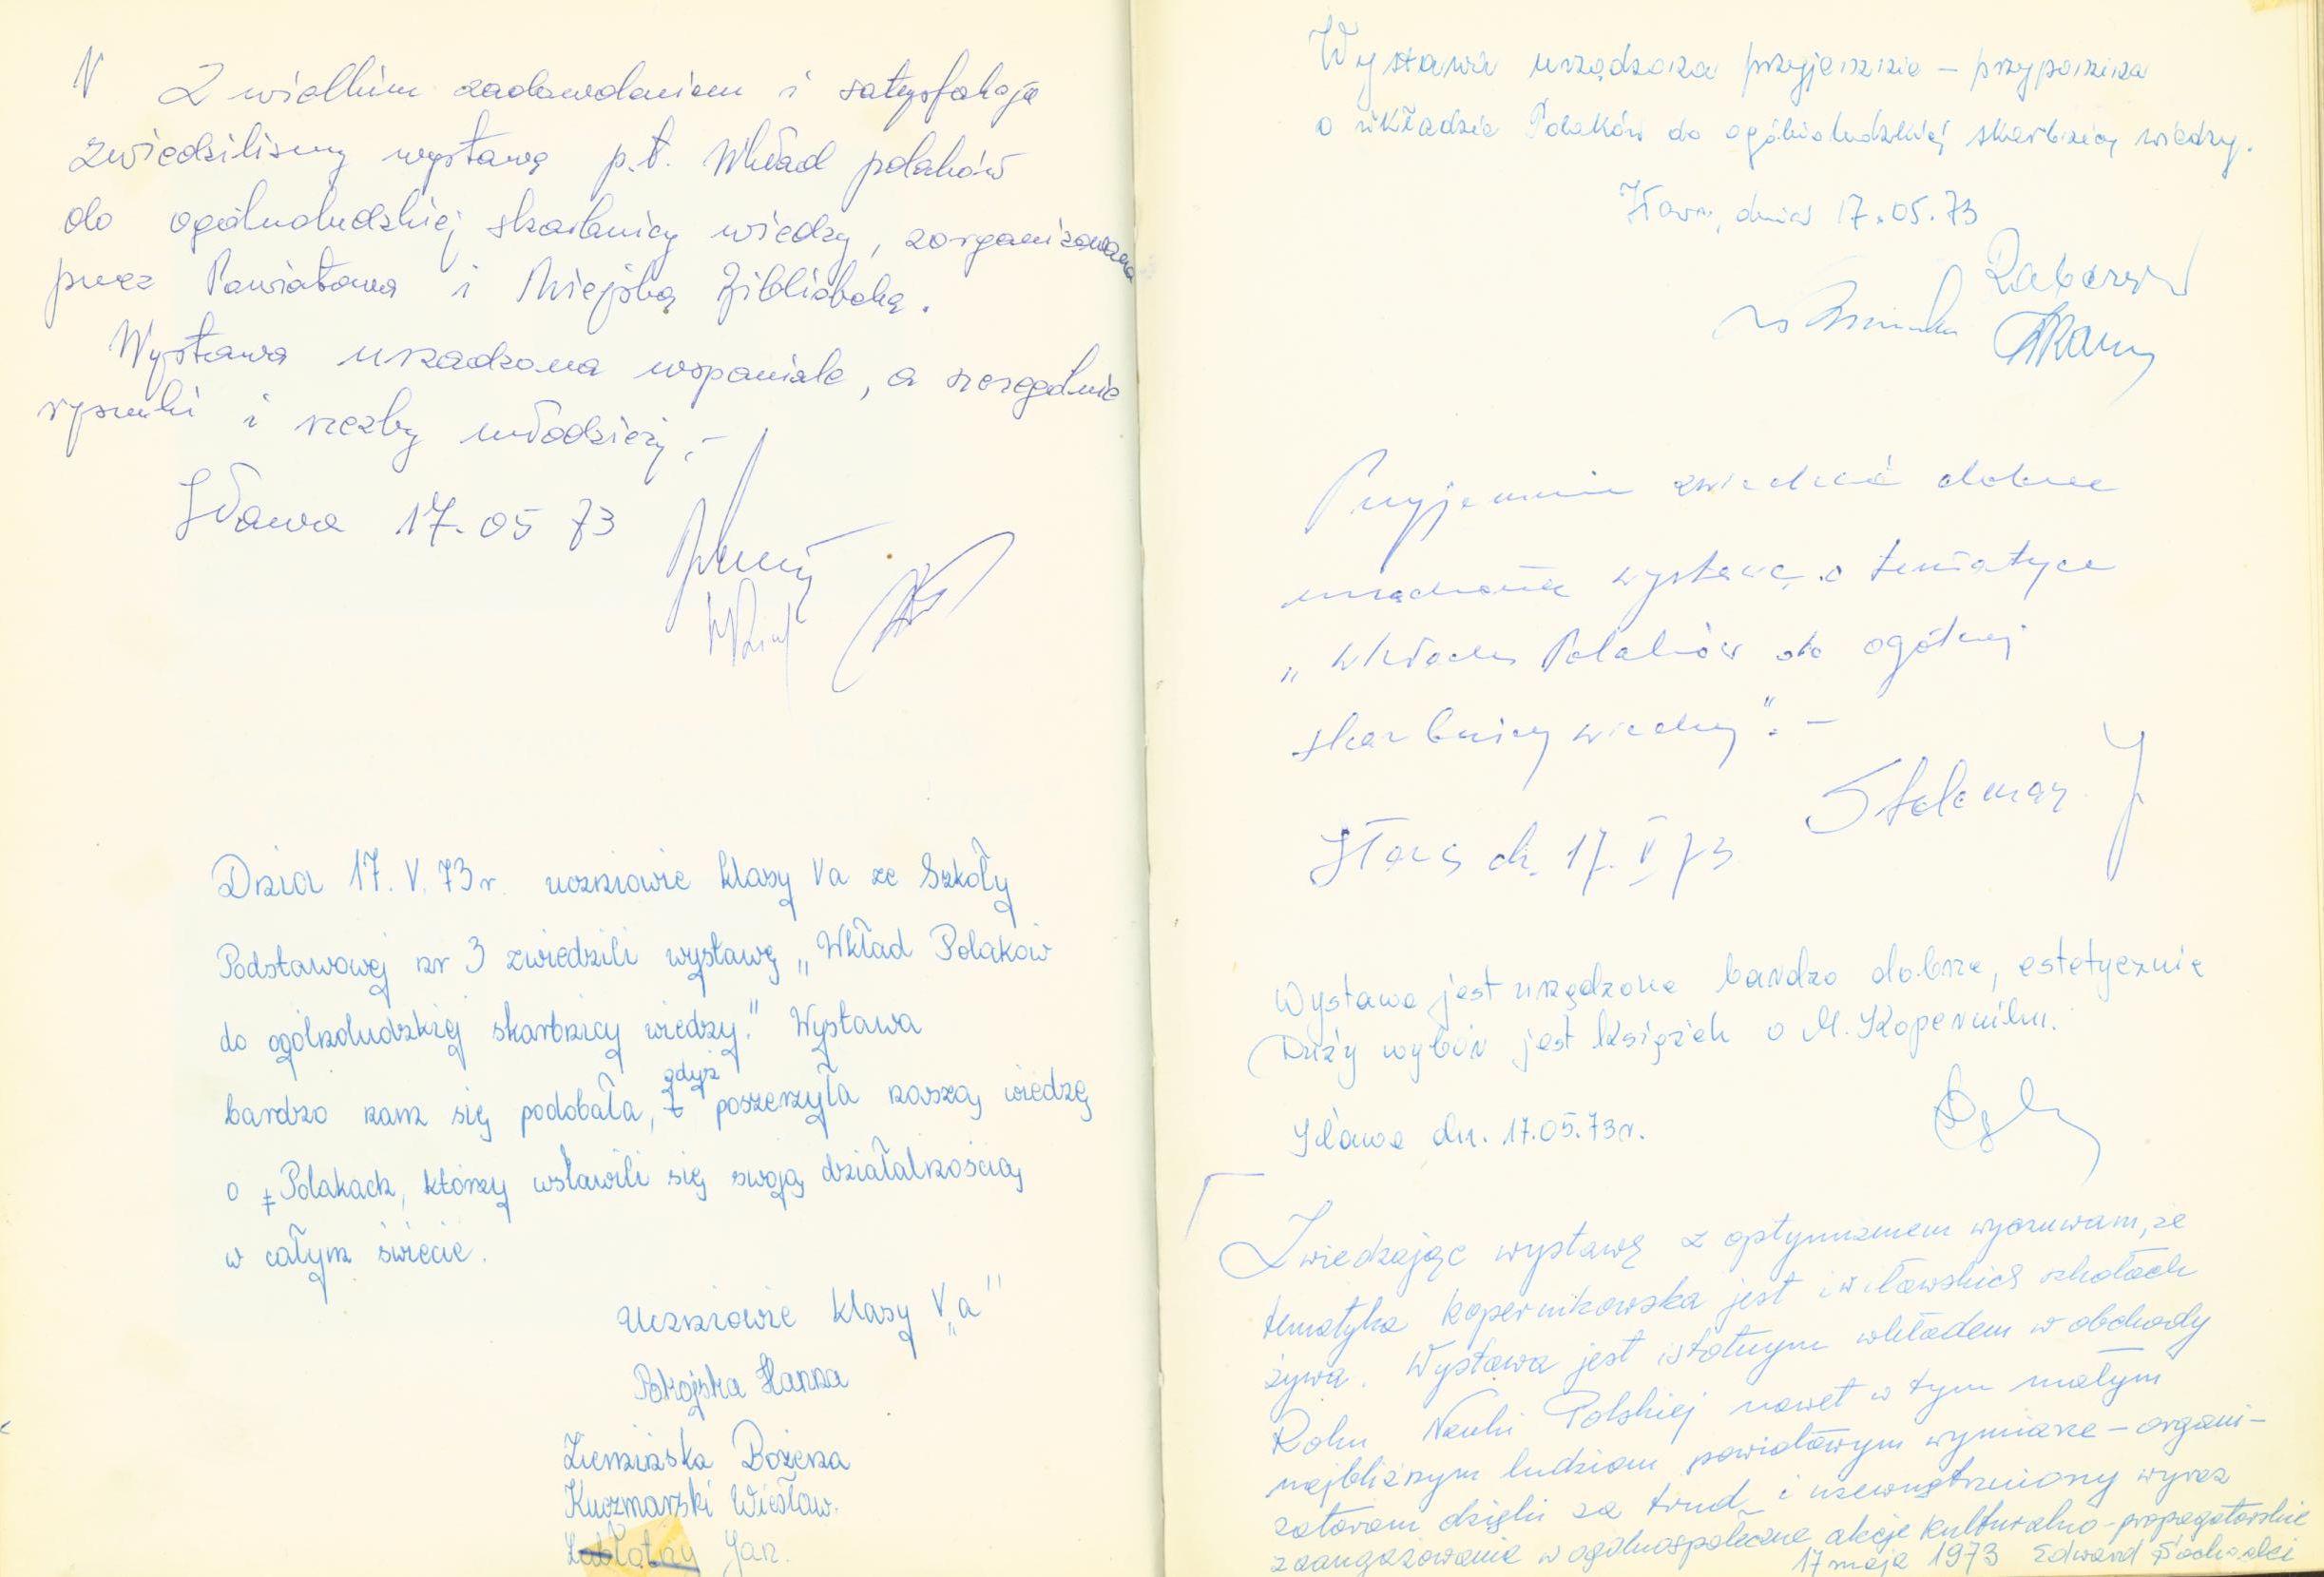 N Z wielkim zadowoleniem i satysfakcją
zwiedziliśmy wystawę p.t. Wkład polaków
do ogólnoludzkiej skarbnicy wiedzy, zorganizowaną
przez Powiatową i Miejską Bibliotekę.
Wystawa urządzona wspaniale, a szczególnie
rysunki i rzeźby młodzieży,-
Iława 17.05 73
Dnia 17. V. 73 r. uczniowie klasy Va ze Szkoły
Podstawowej nr 3 zwiedzili wystawę „Wkład Polaków
do ogólnoludzkiej skarbnicy wiedzy." Wystawa
bardzo nam się podobała, gdyż poszerzyła naszą wiedzę
o Polakach, którzy wsławili się swoją działalnością
w całym świecie.
Uczniowie klasy V„a"
Pokojska Hanna
Ziemińska Bożena
Kuczmarski Wiesław.
Zabłotny Jan.
Wystawa urządzona przyjemnie – przypomina
o wkładzie Polaków do ogólnoludzkiej skarbnicy wiedzy.
Iława, dnia 17.05.73
Przyjemnie zwiedzić dobrze
urządzoną wystawę o tematyce
„Wkładu Polaków do ogólnej
skarbnicy wiedzy". –
Iława dn. 17. V 73
Wystawa jest urządzona bardzo dobrze, estetycznie
Duży wybór jest książek o M. Koperniku.
Iława dn. 17.05.73r.
Zwiedzając wystawę z optymizmem wyczuwam, że
tematyka kopernikowska jest i w iławskich szkołach
żywa. Wystawa jest istotnym wkładem w obchody
Roku Nauki Polskiej nawet w tym małym
najbliższym ludziom powiatowym wymiarze – organi-
zatorom dzięki za trud i uzewnętrzniony wyraz
zaangażowania w ogólnospołeczne akcje kulturalno-propagatorskie
17 maja 1973 Edward